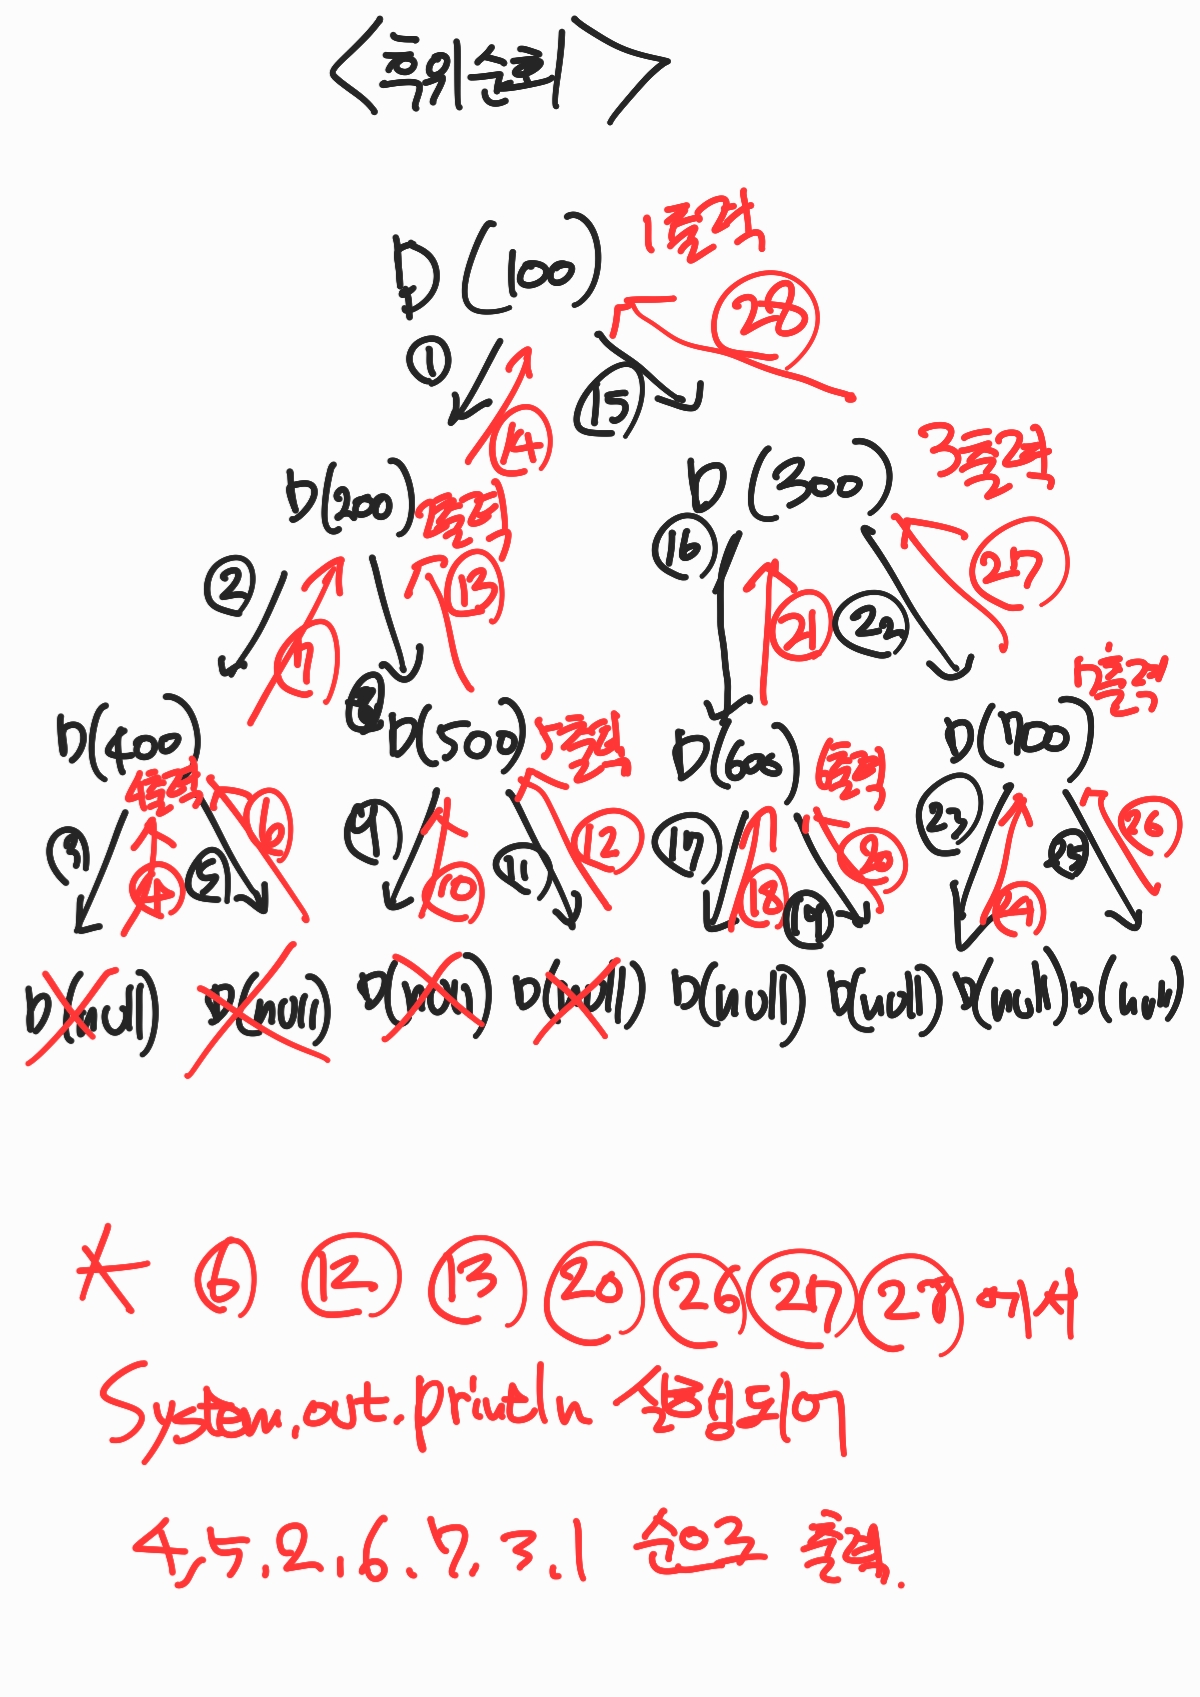 <후위순회>
D(100) 1출력
① ⑭ ⑮ ㉘
D(200) 2출력 D(300) 3출력
② ⑦ ⑧ ⑬ ⑯ ㉑ ㉒ ㉗
D(400) 4출력 D(500) 5출력 D(600) 6출력 D(700) 7출력
③ ④ ⑤ ⑥ ⑨ ⑩ ⑪ ⑫ ⑰ ⑱ ⑲ ⑳ ㉓ ㉔ ㉕ ㉖
D(null) D(null) D(null) D(null) D(null) D(null) D(null) D(null)
* ⑥ ⑫ ⑬ ⑳ ㉖ ㉗ ㉘ 에서
System.out.println 실행되어
4,5.2,6.7.3.1 순으로 출력.